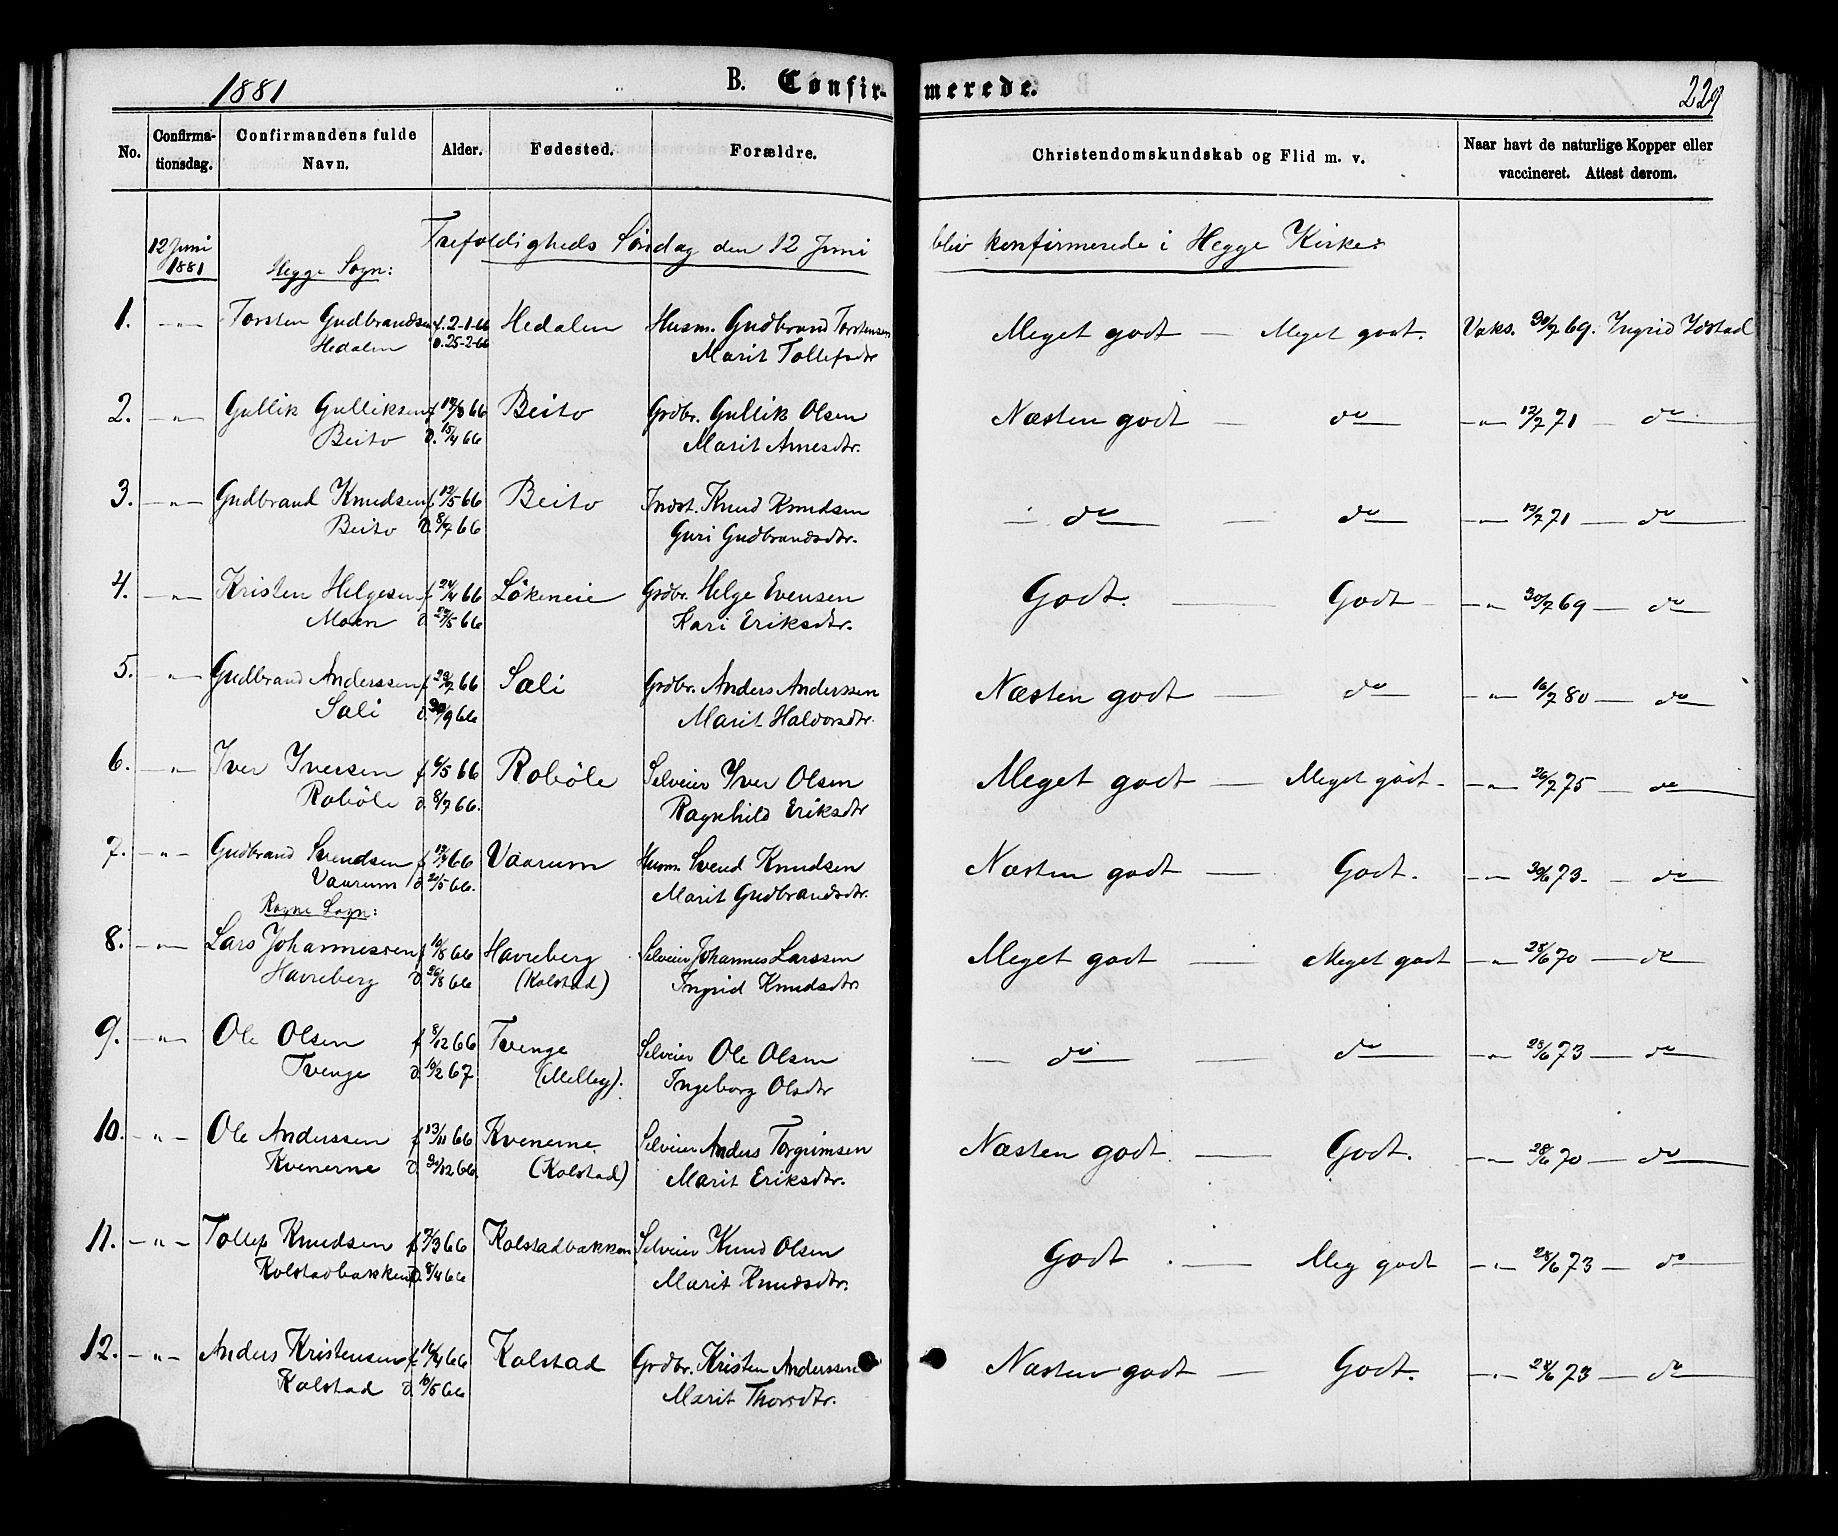 1881 B. Confirmerede. 229
No. Confirmationsdag. Confirmandens fulde Navn. Alder. Fødested. Forældre. Christendomskundskab og Flid m. v. Naar havt de naturlige Kopper eller vaccineret. Attest derom.
12 Juni 1881 Trefoldigheds Söndag den 12 Juni blev konfirmerede i Hegge Kirke:
Hegge Sogn:
1. — " — Torsten Gudbrandsen f. 2-1-66 Hedalen Husm. Gudbrand Torstensen Meget godt — Meget godt. Vaks. 30/7 69. Ingrid Idstad
Hedalen d. 25-2-66 Marit Tollefsdtr
2. — " — Gullik Gulliksen f 19/3 66 Beito Grdbr. Gullik Olsen Næsten godt — do — " — 12/7 71 — do
Beito d. 15/4 66 Marit Arnesdtr.
3. — " — Gudbrand Knudsen f 12/5 66 Beito Indst. Knud Knudsen — do — do — " — 12/7 71 — do
Beito d. 8/7 66 Guri Gudbrandsdtr.
4. — " — Kristen Helgesen f 24/4 66 Lökeneie Grdbr. Helge Evensen Godt. — Godt — " — 30/7 69 — do
Moen d. 29/5 66 Kari Eriksdtr.
5. — " — Gudbrand Anderssen f 29/7 66 Sæli Grdbr. Anders Anderssen Næsten godt — do — " — 16/7 80 — do
Sæli d. 30/9 66 Marit Halvorsdtr.
6. — " — Iver Iversen f 6/5 66 Roböle Selveier Iver Olsen Meget godt — Meget godt — " — 26/7 75 — do
Roböle d. 8/7 66. Ragnhild Eriksdtr
7. — " — Gudbrand Svendsen f 19/4 66 Vaarum Husm. Svend Knudsen Næsten godt — Godt. — " — 30/6 73 — do
Vaarum d. 20/5 66. Marit Gudbrandsdtr.
Rogne Sogn:
8. — " — Lars Johannessen f 10/8 66 Havreberg Selveier Johannes Larssen Meget godt — Meget godt — " — 28/6 70 — do
Havreberg d. 26/8 66 (Kolstad) Ingrid Knudsdtr
9. — " — Ole Olsen f 8/12 66 Tvenge Selveier Ole Olsen — do — do — " — 28/6 73 — do
Tvenge d. 10/2 67. (Melbey). Ingeborg Olsdtr
10. — " — Ole Anderssen f 13/11 66 Kvenerne Selveier Anders Torgrimsen Næsten godt. — Godt. — " — 28/6 70 — do
Kvenerne d. 30/12 66. (Kolstad) Marit Eriksdtr.
11. — " — Tollef Knudsen f 7/3 66 Kolstadbakken Selveier Knud Olsen Godt. — Meg godt — " — 28/6 73 — do
Kolstadbakken d. 8/4 66 Marit Knudsdtr.
12. — " — Anders Kristensen f. 16/4 66 Kolstad Grdbr. Kristen Anderssen Næsten godt — Godt. — " — 28/6 73 — do
Kolstad d. 10/5 66 Marit Thorsdtr.